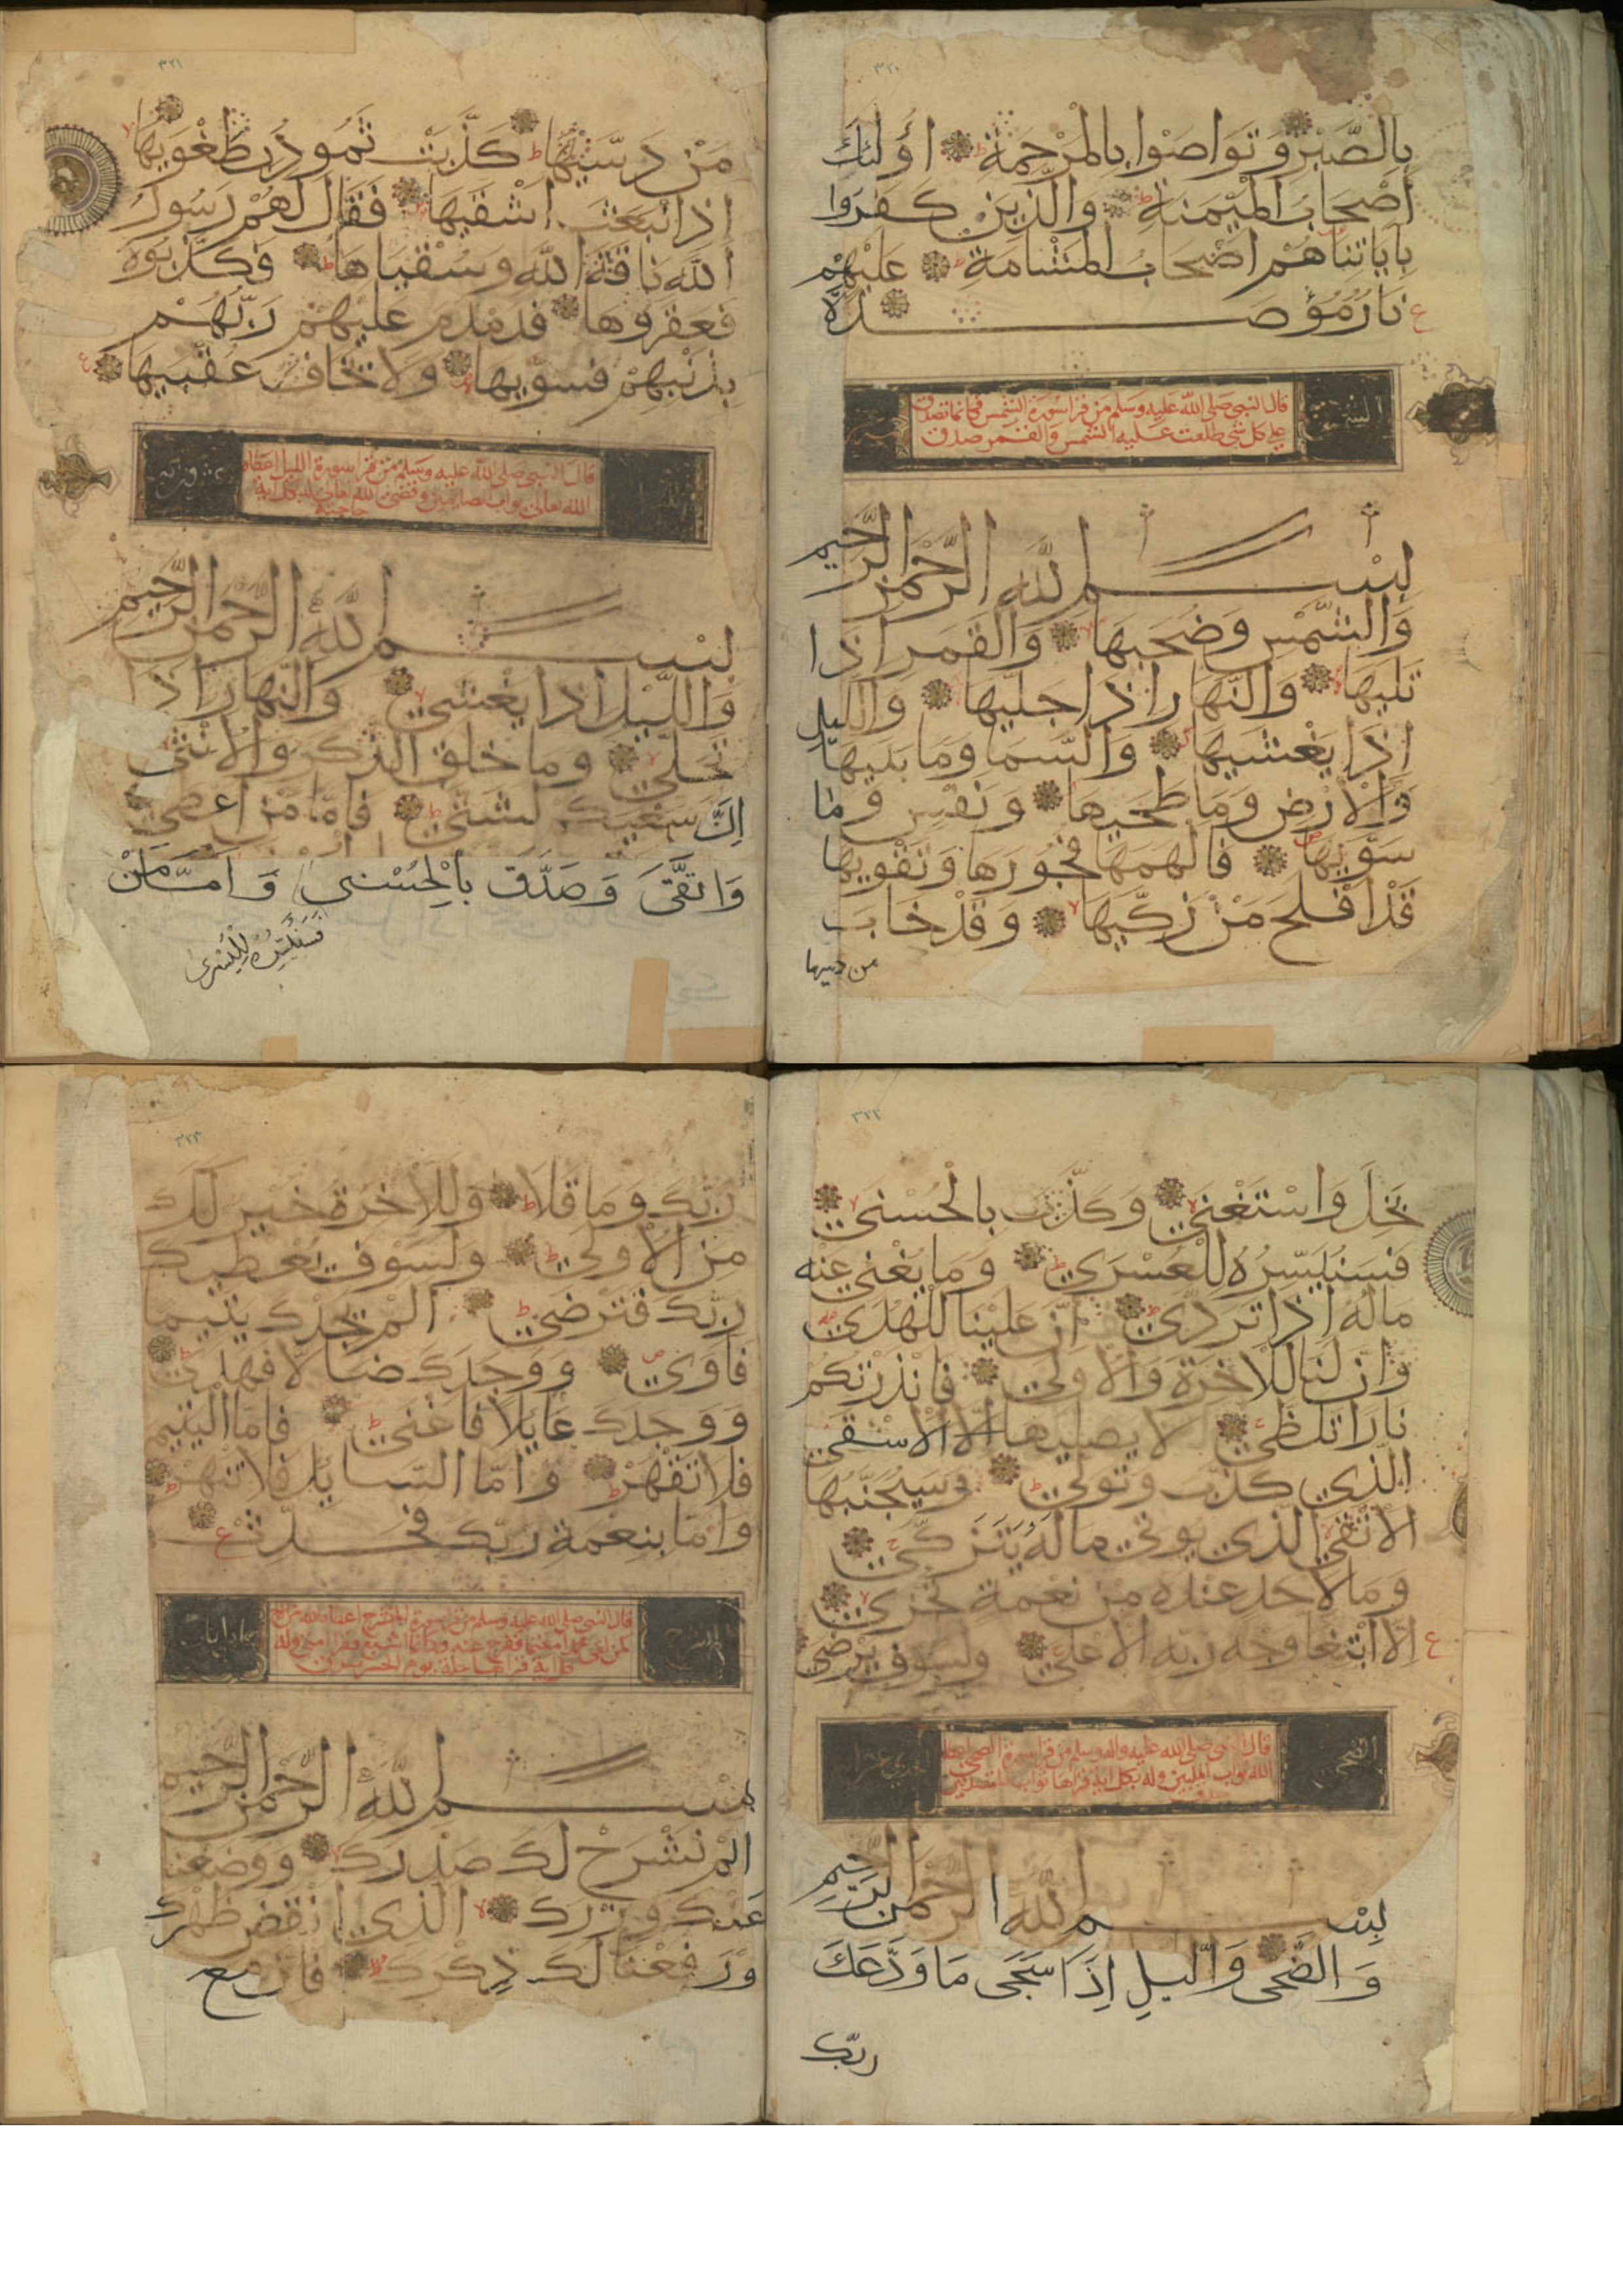 ٣٢٠
بِالصَّبْرِ وَتَوَاصَوْا بِالْمَرْحَمَةِ اُولئِكَ
اَصْحَابُ الْمَيْمَنَةِ وَالَّذِينَ كَفَرُوا
بِاٰيَاتِنَا هُمْ اَصْحَابُ الْمَشْئَامَةِ عَلَيْهِمْ
نَارٌ مُؤْصَدَةٌ
ع
الشمس
قال النبي صلى الله عليه وسلم من قرا سورة الشمس فكانما تصدق
على كل شي طلعت عليه الشمس والقمر صدق
بِسْمِ اللّٰهِ الرَّحْمٰنِ الرَّحِيمِ
وَالشَّمْسِ وَضُحَيهَا وَالْقَمَرِ اِذَا
تَلَيهَا وَالنَّهَارِ اِذَا جَلَّيهَا وَاللَّيْلِ
اِذَا يَغْشَيهَا وَالسَّمَا وَمَا بَنَيهَا
وَالْاَرْضِ وَمَا طَحَيهَا وَنَفْسٍ وَمَا
سَوَّيهَا فَاَلْهَمَهَا فُجُورَهَا وَتَقْوَيهَا
قَدْ اَفْلَحَ مَنْ زَكَّيهَا وَقَدْ خَابَ
من دسيها
٣٢١
مَنْ دَسَّيهَا كَذَّبَتْ ثَمُودُ بِطَغْوَيهَا
اِذِ انْبَعَثَ اَشْقَيهَا فَقَالَ لَهُمْ رَسُولُ
اللّٰهِ نَاقَةَ اللّٰهِ وَسُقْيَاهَا فَكَذَّبُوهُ
فَعَقَرُوهَا فَدَمْدَمَ عَلَيْهِمْ رَبُّهُمْ
بِذَنْبِهِمْ فَسَوَّيهَا وَلَا يَخَافُ عُقْبَيهَا
ع
قال النبي صلى الله عليه وسلم من قرا سورة الليل اعطاه
الله تعالى ثواب وقضى الله تعالى له بكل اية
حاجته
بِسْمِ اللّٰهِ الرَّحْمٰنِ الرَّحِيمِ
وَاللَّيْلِ اِذَا يَغْشَي وَالنَّهَارِ اِذَا
تَجَلَّي وَمَا خَلَقَ الذَّكَرَ وَالْاُنْثَي
اِنَّ سَعْيَكُمْ لَشَتَّي فَاَمَّا مَنْ اَعْطَي
وَاتَّقَى وَصَدَّقَ بِالْحُسْنى وَاَمَّا مَنْ
فَسَنُيَسِّرُهُ لِلْيُسْرى
٣٢٢
بَخِلَ وَاسْتَغْنَي وَكَذَّبَ بِالْحُسْنَي
فَسَنُيَسِّرُهُ لِلْعُسْرَي وَمَا يُغْنِي عَنْه
مَالُهُ اِذَا تَرَدَّي اِنَّ عَلَيْنَا لَلْهُدَي
وَاِنَّ لَنَا لَلْاٰخِرَةَ وَالْاُولَي فَاَنْذَرْتُكُمْ
نَارًا تَلَظَّي لَا يَصْلَيهَا اِلَّا الْاَشْقَي
الَّذِي كَذَّبَ وَتَوَلَّي وَسَيُجَنَّبُهَا
الْاَتْقَي الَّذِي يُوتِي مَالَهُ يَتَزَكَّي
وَمَا لِاَحَدٍ عِنْدَهُ مِنْ نِعْمَةٍ تُجْزَي
اِلَّا ابْتِغَا وَجْهِ رَبِّهِ الْاَعْلَي وَلَسَوْفَ يَرْضَي
ع
الضحى
احدي عشر اية
قال النبي صلى الله عليه واله وسلم من قرا سورة الضحى جعله
الله ثواب وله بكل اية قراها ثواب
بِسْمِ اللّٰهِ الرَّحْمٰنِ الرَّحِيمِ
وَالضُّحى وَالَّيلِ اِذَا سَجَى مَا وَدَّعَكَ
ربّك
٣٢٣
رَبُّكَ وَمَا قَلَا وَلَلْاٰخِرَةُ خَيْرٌ لَكَ
مِنَ الْاُولَي وَلَسَوْفَ يُعْطِيكَ
رَبُّكَ فَتَرْضَي اَلَمْ يَجِدْكَ يَتِيمًا
فَاٰوَي وَوَجَدَكَ ضَالًّا فَهَدَي
وَوَجَدَكَ عَايِلًا فَاَغْنَي فَاَمَّا الْيَتِيمَ
فَلَا تَقْهَرْ وَاَمَّا السَّايِلَ فَلَا تَنْهَرْ
وَاَمَّا بِنِعْمَةِ رَبِّكَ فَحَدِّثْ
ع
الشرح
قال النبي صلى الله عليه وسلم من قرا سورة الم نشرح اعطاه الله
بِسْمِ اللّٰهِ الرَّحْمٰنِ الرَّحِيمِ
اَلَمْ نَشْرَحْ لَكَ صَدْرَكَ وَوَضَعْنَا
عَنْكَ وِزْرَكَ الَّذِي اَنْقَضَ ظَهْرَكَ
وَرَفَعْنَا لَكَ ذِكْرَكَ فَاِنَّ مع